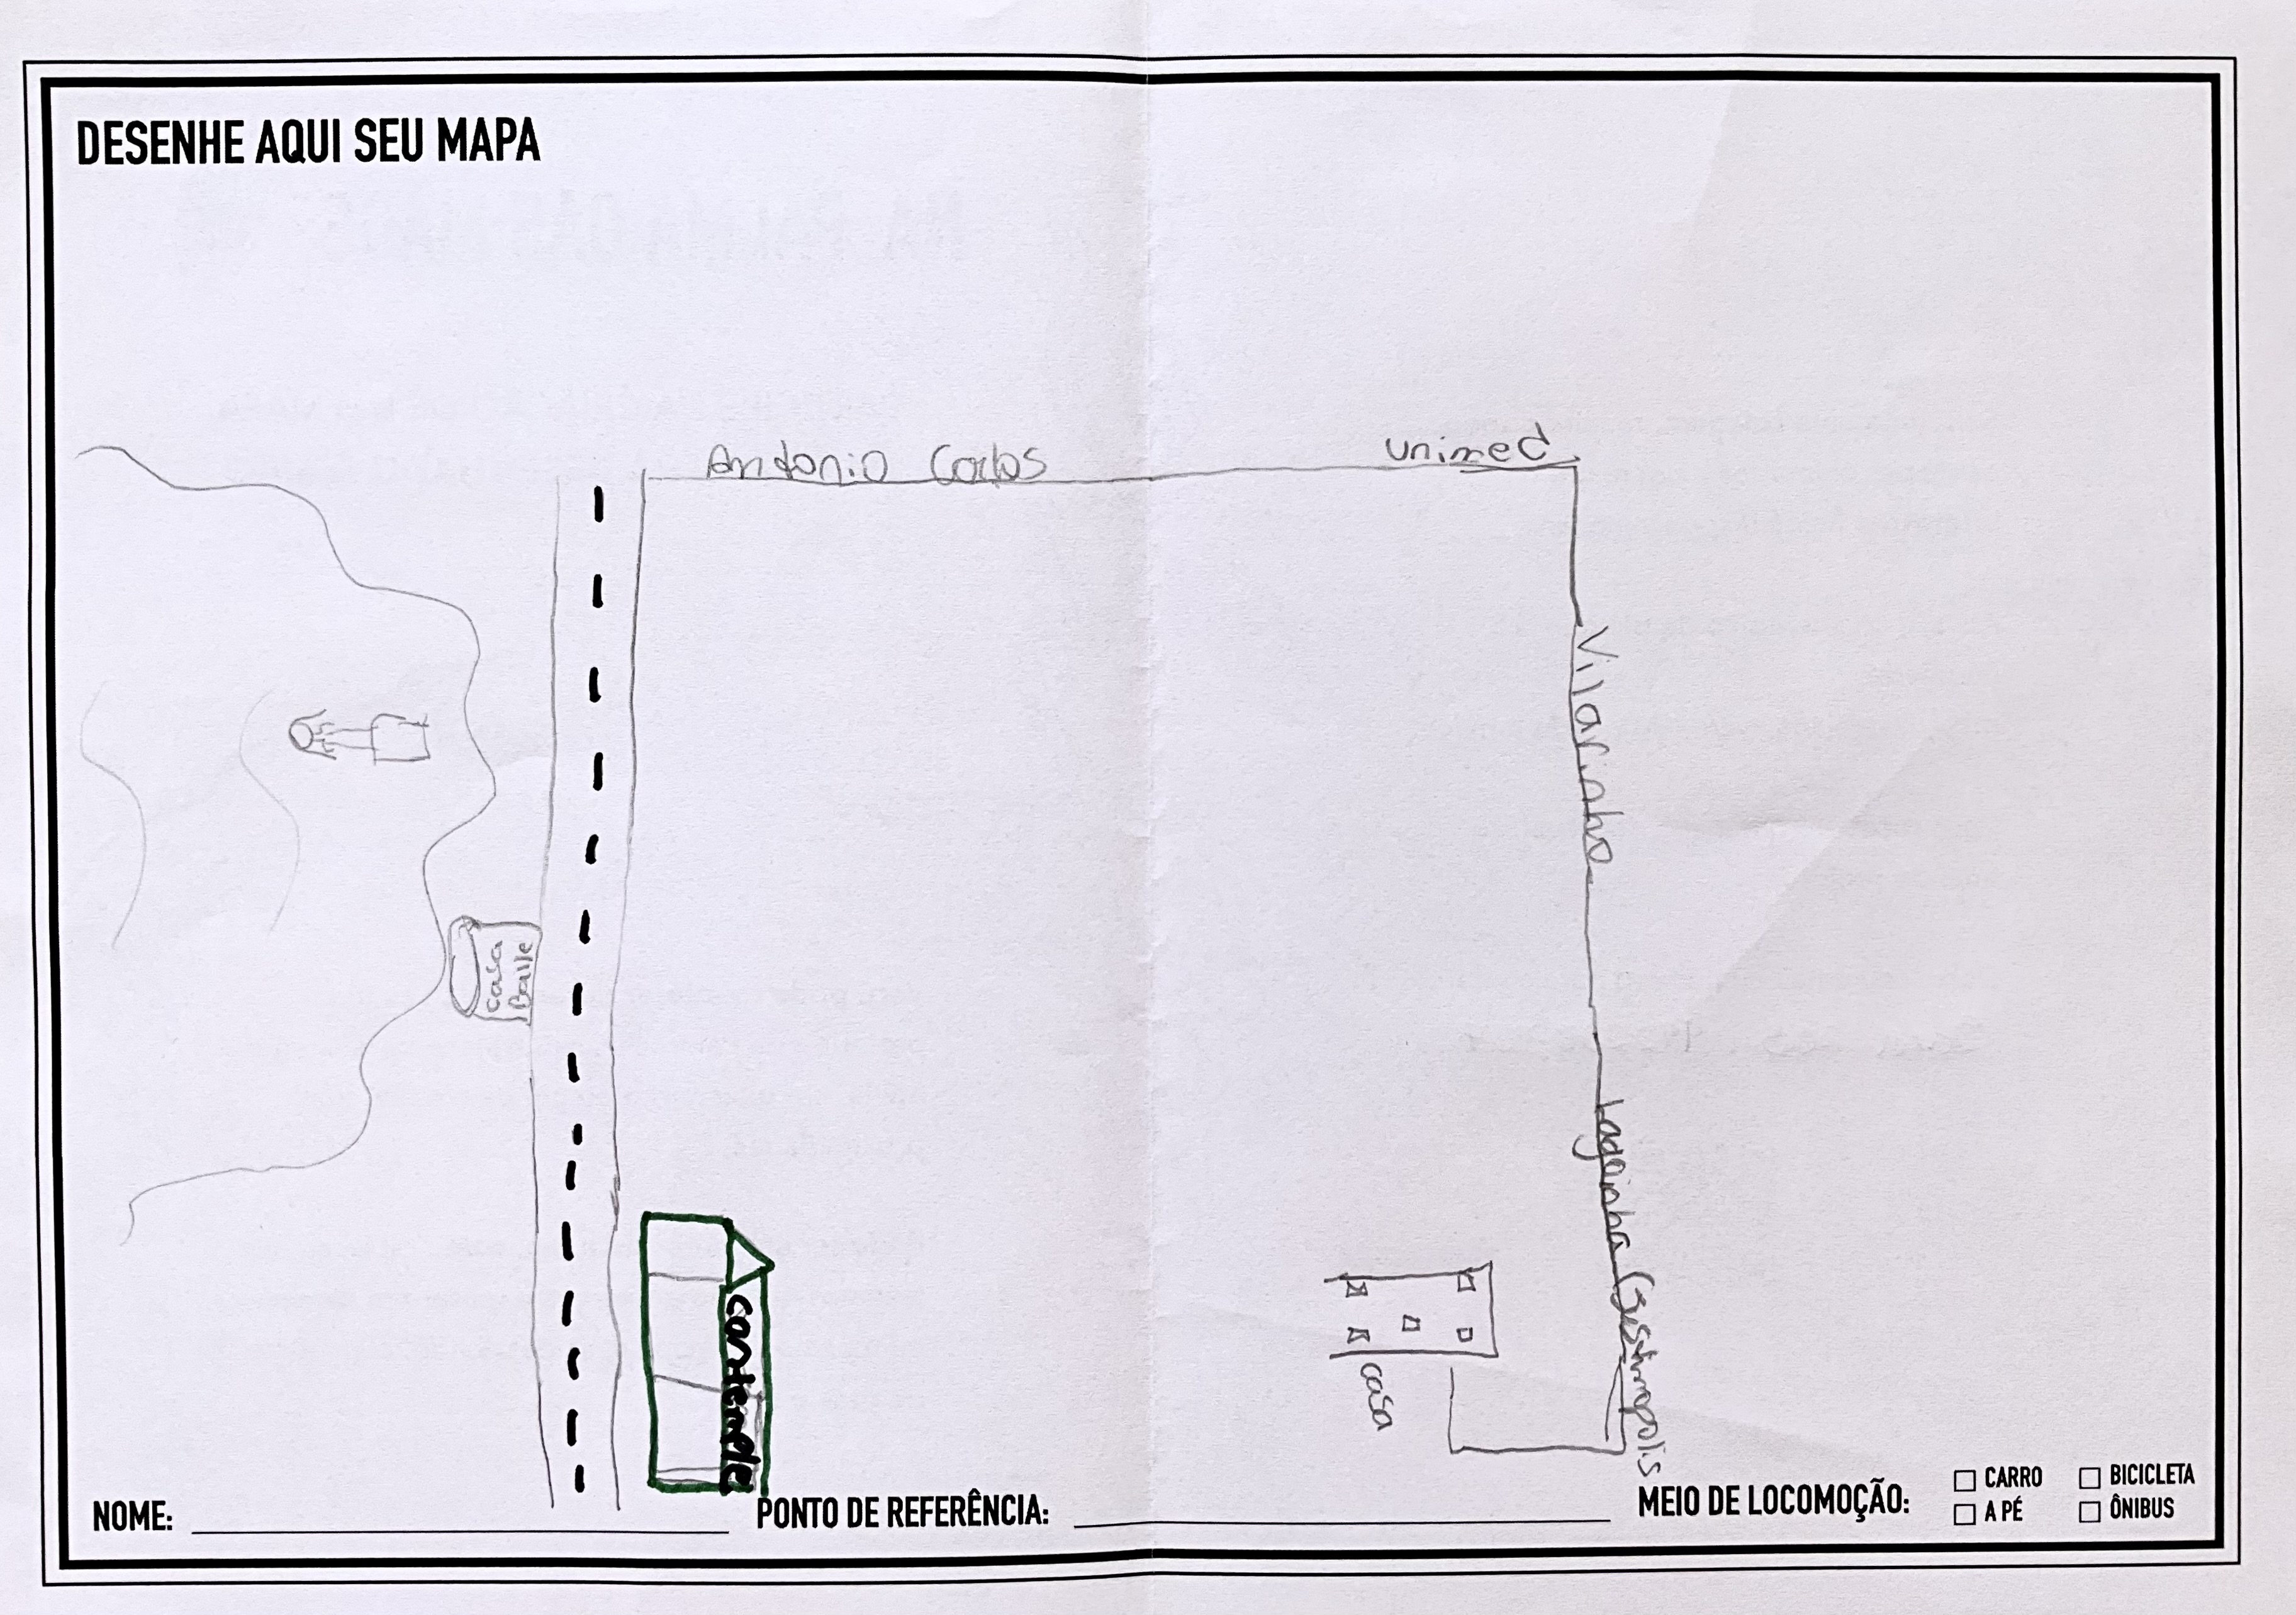 DESENHE AQUI SEU MAPA
Antonio Carlos
unimed
Vilarinho
Lagoinha
casa
Baile
casa
NOME:
PONTO DE REFERÊNCIA:
MEIO DE LOCOMOÇÃO:
CARRO
BICICLETA
A PÉ
ÔNIBUS